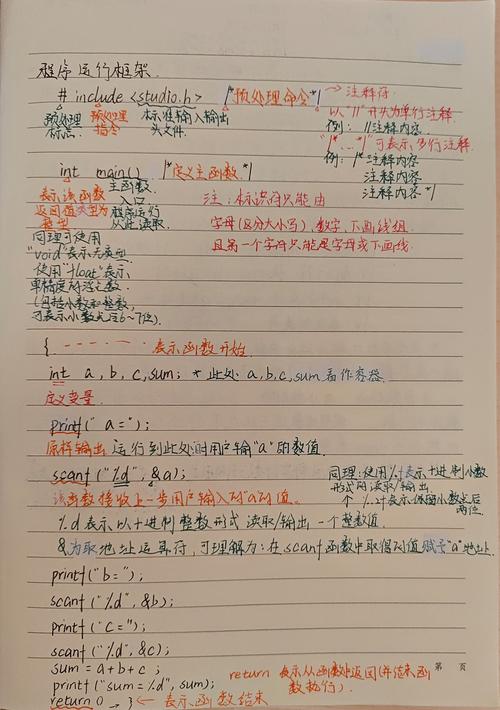 程序运行框架.
# include <studio.h> /*预处理命令*/ → 注释符
预处理 预处理 标准输入输出 以"//"开头为单行注释.
标志. 指令 头文件. 例: //注释内容.
"/*...*/"可表示多行注释.
例: /* 注释内容
注释内容
注释内容 */
int main() /*定义主函数*/
主函数.
表示该函数 入口 注:标识符只能由
返回值类型为 程序运行 字母(区分大小写),数字,下画线组
整型 从此读取. 且第一个字符只能是字母或下画线.
同理可使用
"void"表示无类型.
使用"float"表示
单精度的浮点数.
(包括小数和整数,
可表示小数点后6~7位).
{ ------- 表示函数开始.
int a, b, c, sum; * 此处: a,b,c,sum看作容器.
定义变量.
printf(" a=");
原样输出 运行到此处时用户输"a"的数值.
scanf ("%d", &a); 同理:使用%f表示十进制小数
形式的读取/输出
该函数接收上一步用户输入对"a"的值。 个 %.2f表示保留小数点后
两位.
%d 表示以十进制整数形式 读取/输出 一个整数值.
&为取地址运算符,可理解为:在scanf函数中取得的值赋予"a"地址上.
printf("b=");
scanf ("%d", &b);
printf("c=");
scanf ("%d", &c);
sum = a+b+c ;
第 页
printf("sum=%d", sum); return 表示从函数中返回(并结束函
数执行).
return 0 } ← 表示函数结束